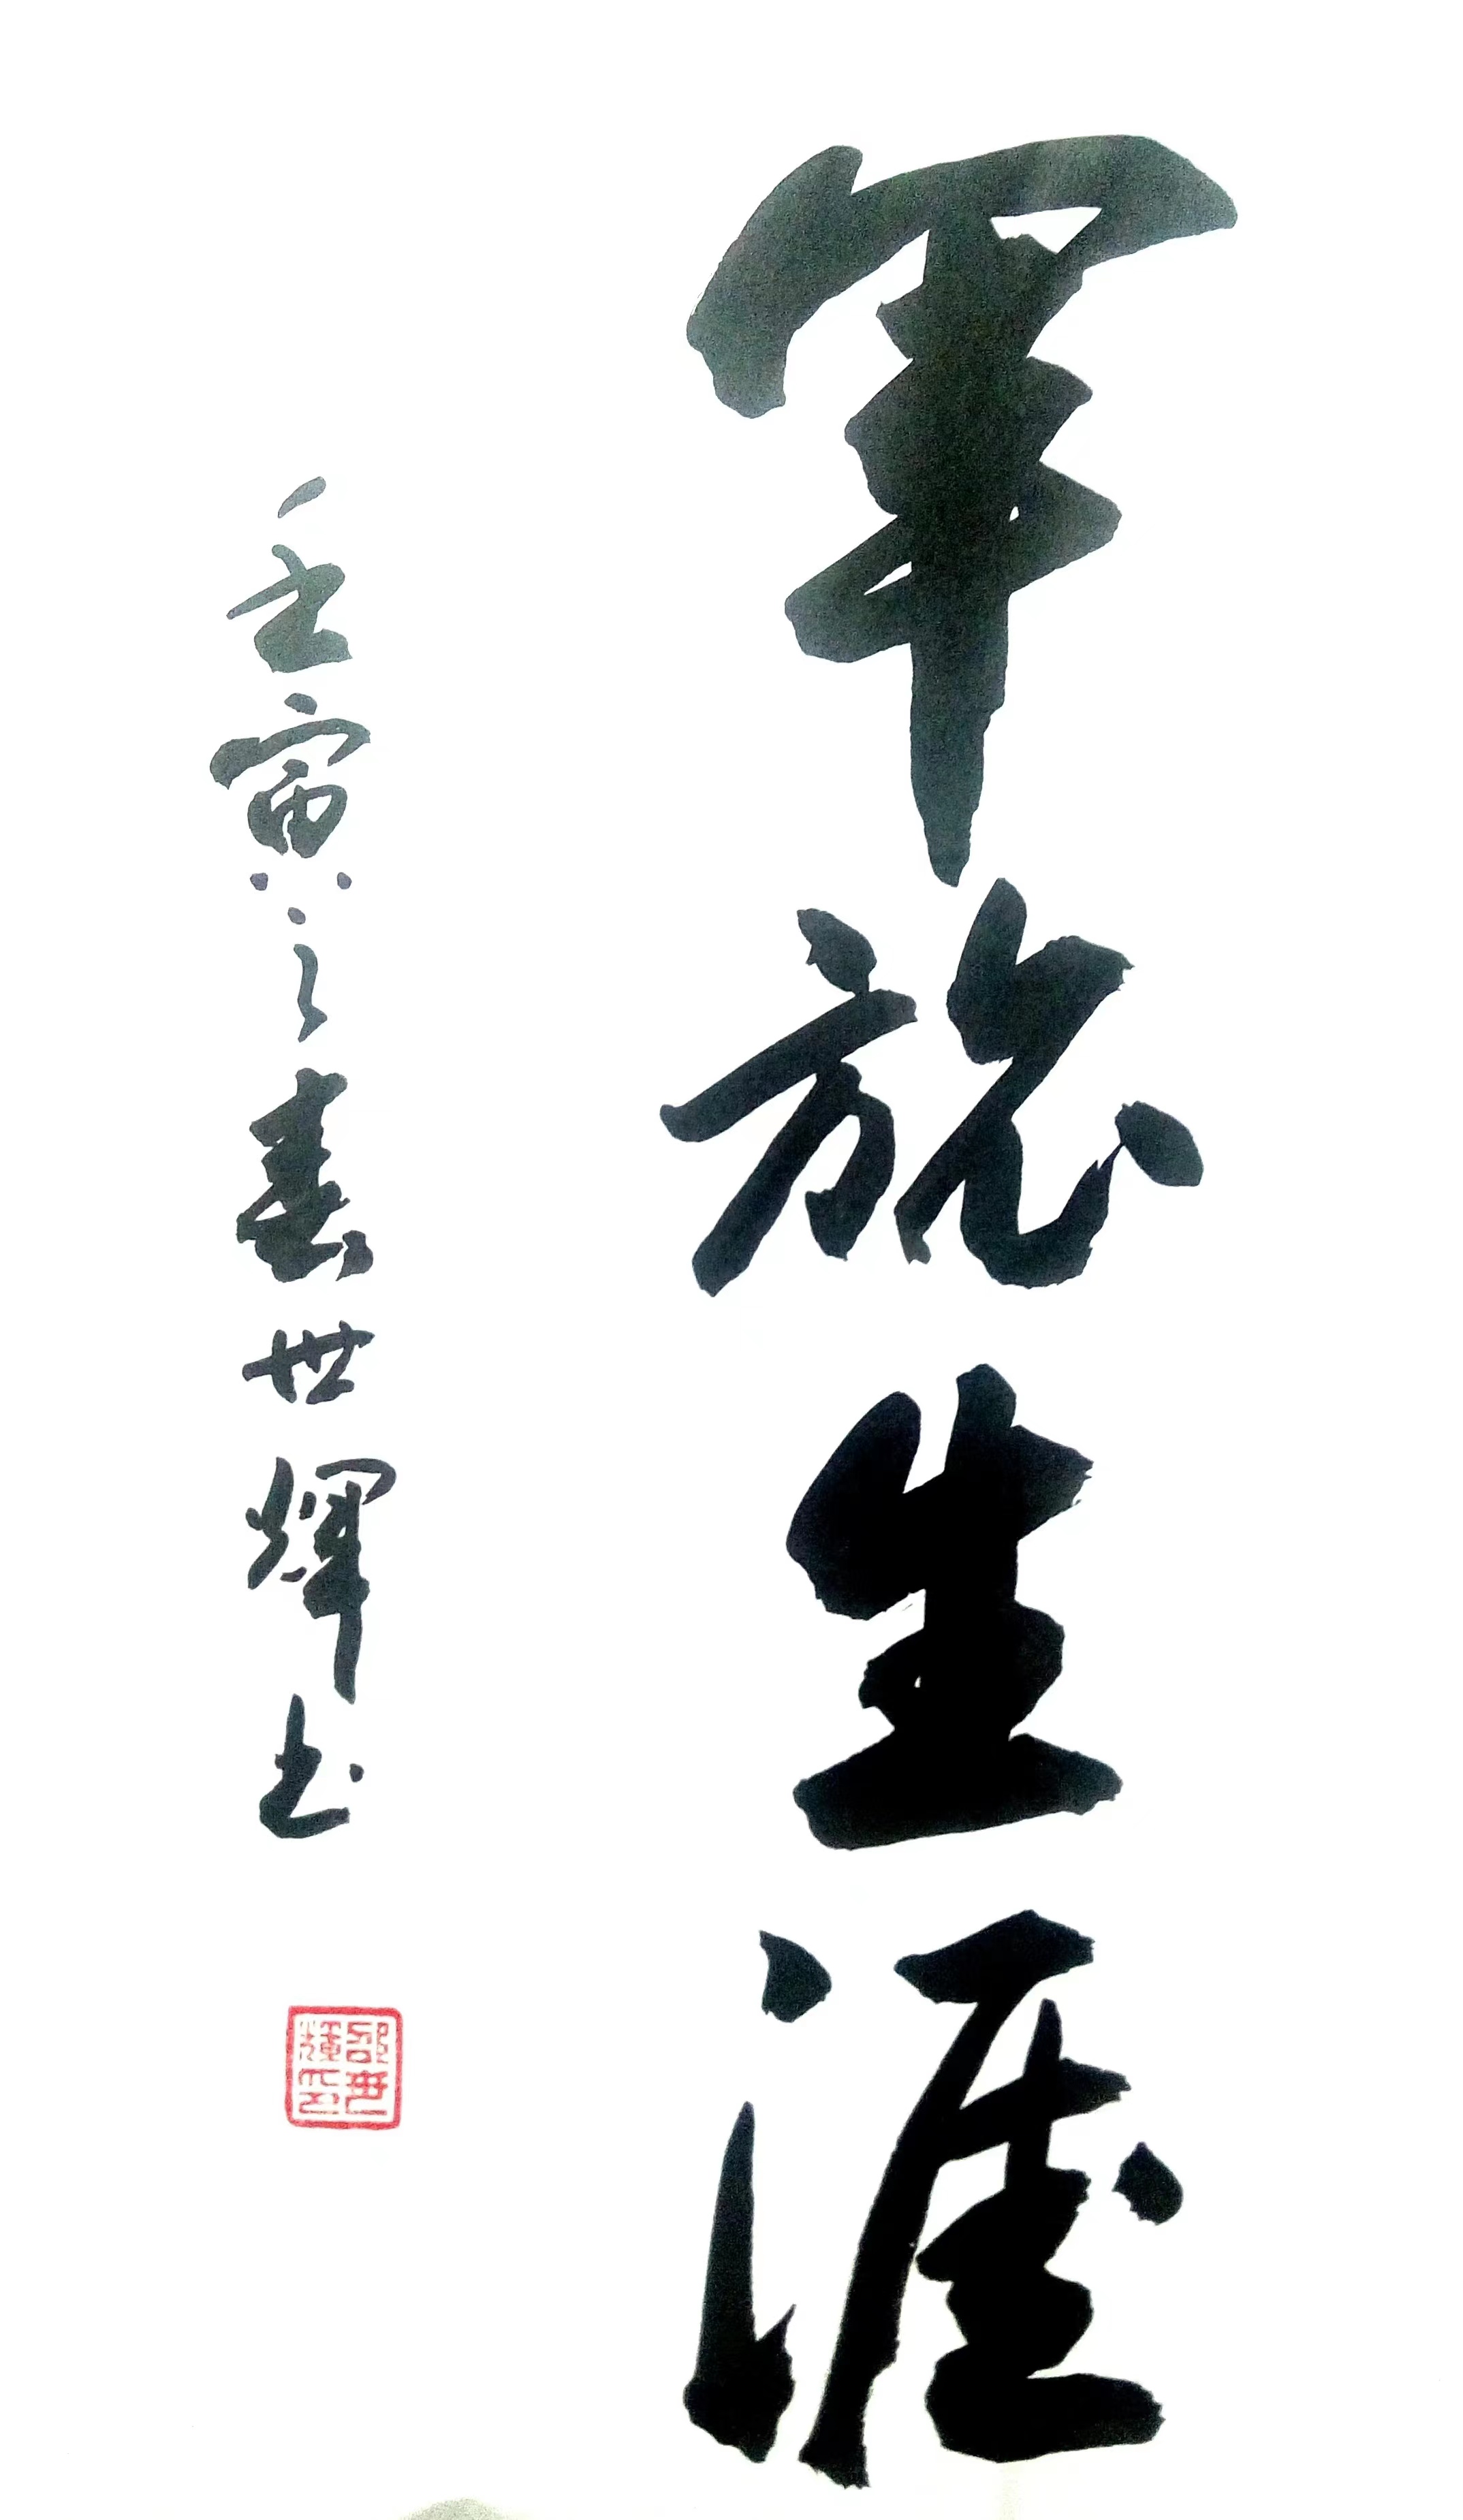 軍旅生涯
壬寅之春世輝书
邵世輝印